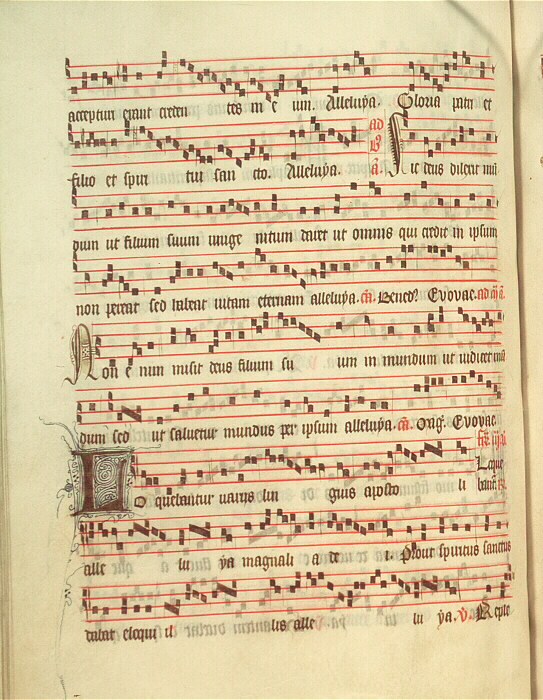 acceptum erant creden tes in e um. Alleluya. Gloria patri et
filio et spiri tui san cto. Alleluya. ad B'. a. Sic deus dilexit mũ
dum ut filium suum unige nitum daret ut omnis qui credit in ipsum
non pereat sed habeat vitam eternam alleluya. Evovae.
Non e nim misit deus filium su um in mundum ut iudicet mũ
dum sed ut salvetur mundus per ipsum alleluya. Evovae
Loquebantur variis lin guis aposto li
alle lu ya magnali a de i. Prout spiritus sanctus
dabat eloqui il lis alle lu ya. V. Reple